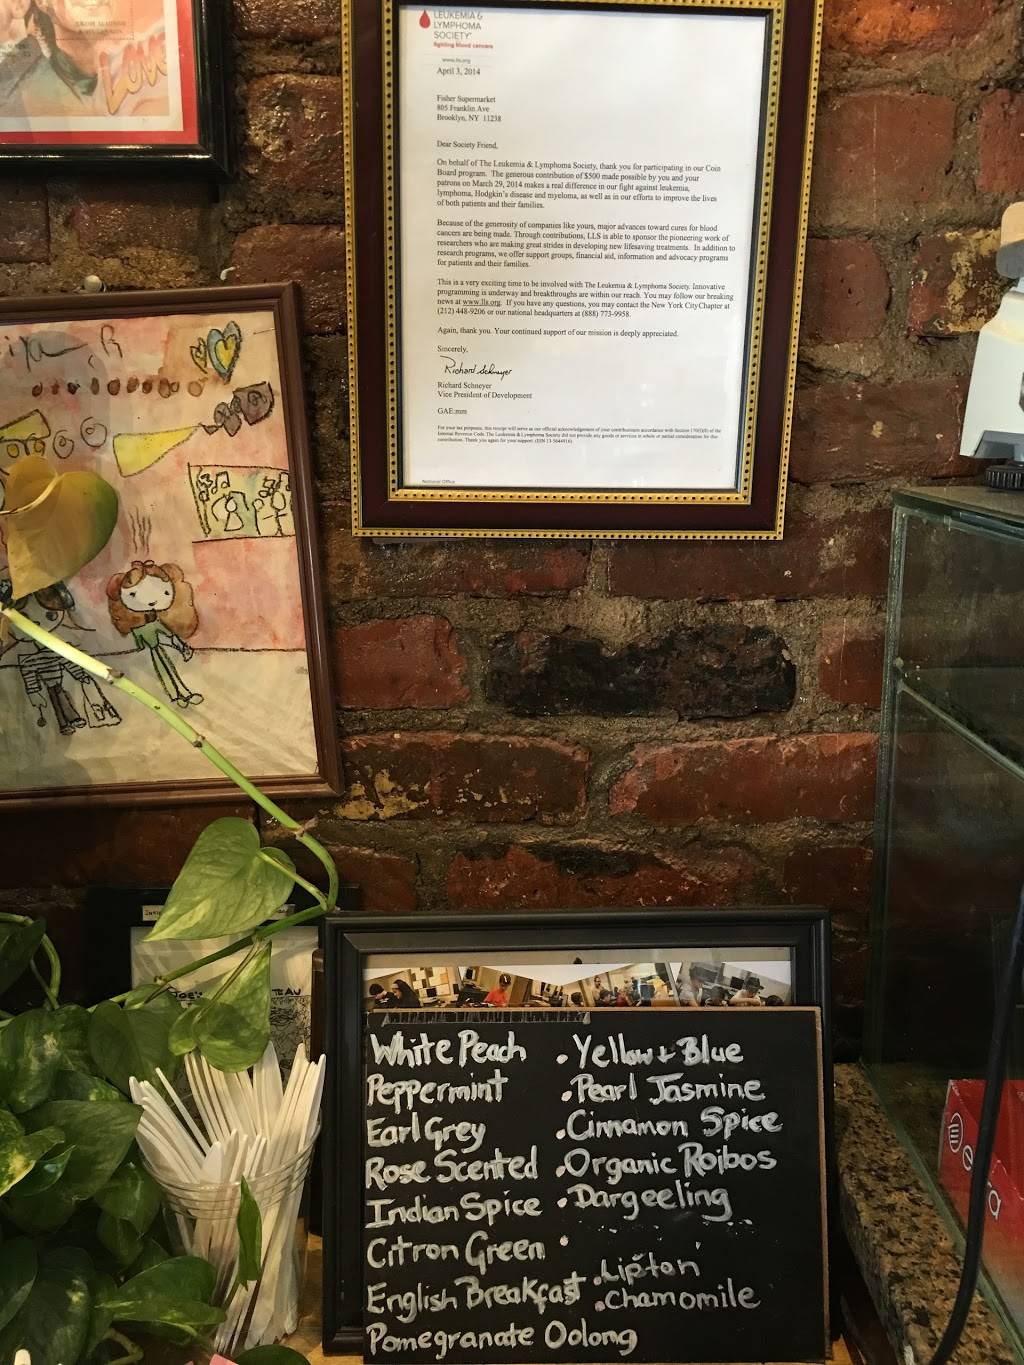 Love
LEUKEMIA &
LYMPHOMA
SOCIETY
fighting blood cancers
www.lls.org
April 3, 2014
Fisher Supermarket
805 Franklin Ave
Brooklyn, NY 11238
Dear Society Friend,
On behalf of The Leukemia & Lymphoma Society, thank you for participating in our Coin
Board program. The generous contribution of $500 made possible by you and your
patrons on March 29, 2014 makes a real difference in our fight against leukemia,
lymphoma, Hodgkin's disease and myeloma, as well as in our efforts to improve the lives
of both patients and their families.
Because of the generosity of companies like yours, major advances toward cures for blood
cancers are being made. Through contributions, LLS is able to sponsor the pioneering work of
researchers who are making great strides in developing new lifesaving treatments. In addition to
research programs, we offer support groups, financial aid, information and advocacy programs
for patients and their families.
This is a very exciting time to be involved with The Leukemia & Lymphoma Society. Innovative
programming is underway and breakthroughs are within our reach. You may follow our breaking
news at www.lls.org. If you have any questions, you may contact the New York City Chapter at
(212) 448-9206 or our national headquarters at (888) 773-9958.
Again, thank you. Your continued support of our mission is deeply appreciated.
Sincerely,
Richard Schneyer
Richard Schneyer
Vice President of Development
GAE:mm
For your tax purposes, this receipt will serve as our official acknowledgement of your contributions in accordance with Section 170(f)(8) of the
Internal Revenue Code. The Leukemia & Lymphoma Society did not provide any goods or services in whole or partial consideration for this
contribution. Thank you again for your support. (EIN 13-5644916)
National Office
JOE'S
White Peach • Yellow + Blue
Peppermint • Pearl Jasmine
Earl Grey • Cinnamon Spice
Rose Scented • Organic Roibos
Indian Spice • Dargeeling
Citron Green •
• Lipton
English Breakfast • Chamomile
Pomegranate Oolong